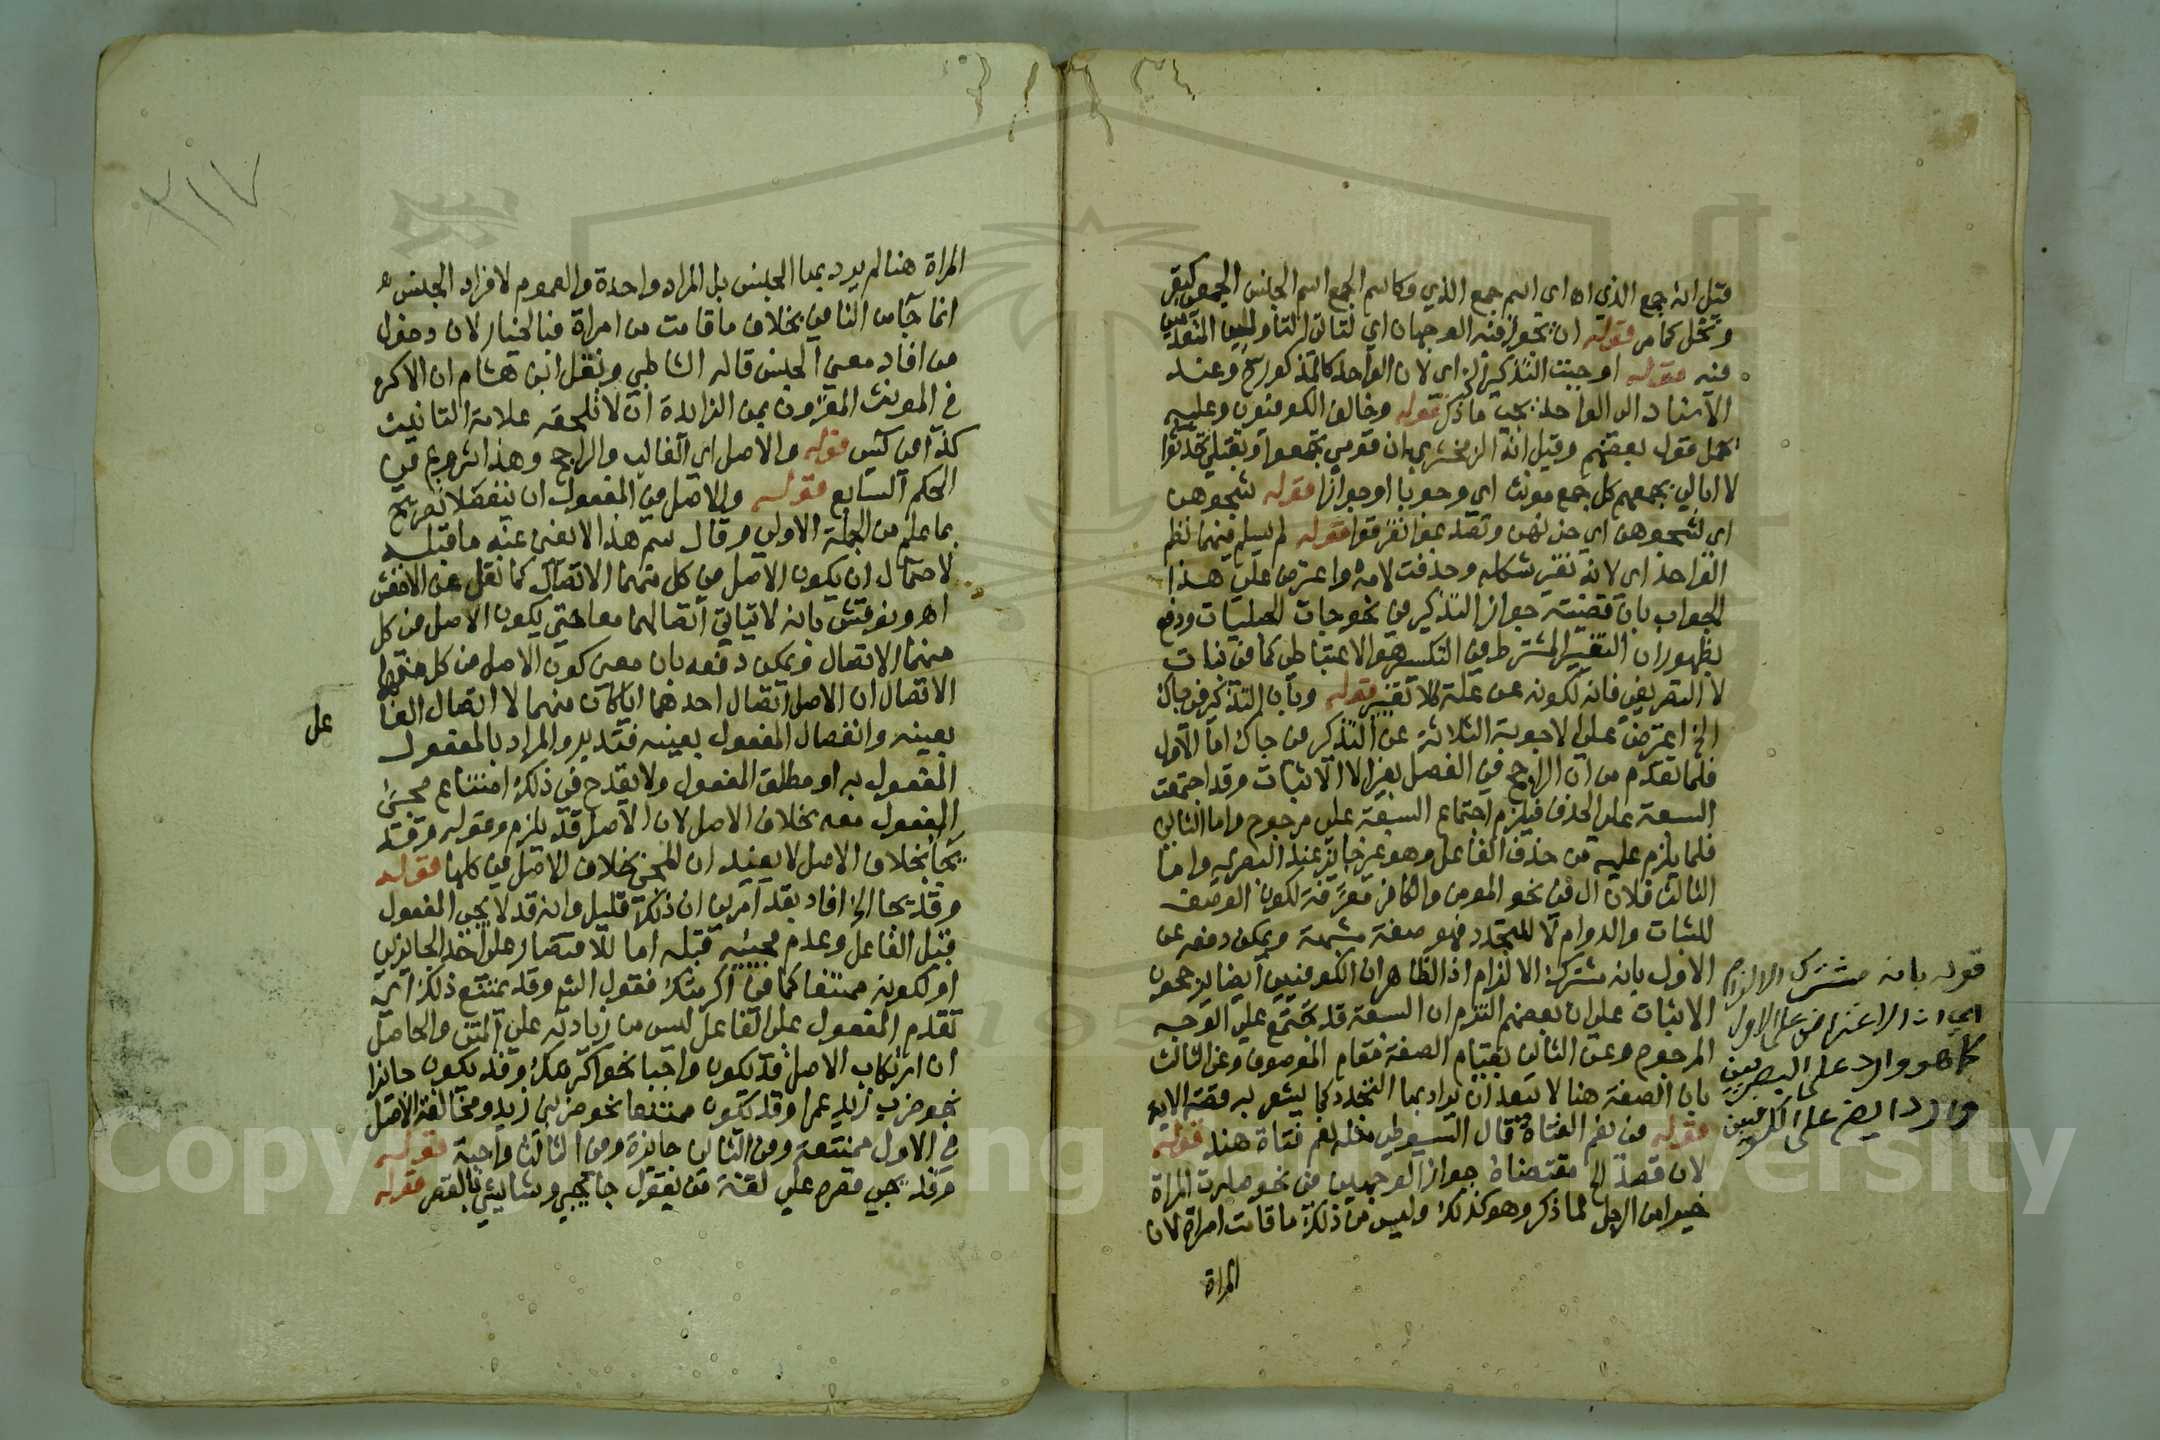 قيل انه جمع الذي اه اي اسم جمع الذي وكاسم الجمع اسم الجنس الجمعي كبقر
ونخل كما مر قوله ان يجوز فيه الوجهان اي لتاتي التاويلين المتقدمين
فيه قوله اوجبت التذكير الخ اي لان الواحد كالمذكور وعند
الاسناد الى الواحد يجب ما ذكر قوله وخالف الكوفيون وعليه
قول بعضهم وقيل انه الزمخشري ان قومي تجمعوا وبقتلي تحدثوا
لا ابالي بجمعهم كل جمع مونث اي وجوبا او جوازا قوله شجوهن
اي لشجوهن اي حزنهن وتصدعوا تفرقوا قوله لم يسلم فيهما نظم
الواحد اي لانه تغير شكله وحذفت لامه واعترض على هذا
الجواب بان قضيته جواز التذكير في نحو جات الحبليات ودفع
بظهور ان التغيير المشترط في التكسير هو الاعتباطي كما في بنات
لا التصريفي فانه لكونه عن علة كلا تغيير قوله وبان التذكير في جاك
الخ اعترض على الاجوبة الثلاثة عن التذكير في جاك اما الاول
فلما تقدم من ان الراجح في الفصل بغير الا الاثبات وقد اجتمعت
السبعة على الحذف فيلزم اجتماع السبعة على مرجوح واما الثاني
فلما يلزم عليه من حذف الفاعل وهو غير جايز عند البصريه واما
الثالث فلان ال في نحو المومن والكافر معرفة لكون الوصف
للثبات والدوام لا للتجدد فهو صفة مشبهة ويمكن دفعه عن
الاول بانه مشترك الالزام اذ الظاهر ان الكوفيين ايضا يرجحون
الاثبات على ان بعضهم التزم ان السبعة قد تجتمع على الوجه
المرجوح وعن الثاني بقيام الصفة مقام الموصوف وعن الثالث
بان الصفة هنا لا يبعد ان يراد بها التجدد كما يشعر به قصة الاية
قوله في نعم الفتاة قال السيوطي مثله نعم فتاة هند قوله
لان قصد الخ مقتضاه جواز الوجهين في نحو صارت المراة
خيرا من الرجل لما ذكر وهو كذلك وليس من ذلك ما قامت امراة لان
المراة
قوله بانه مشترك الالزام
اي ان الاعتراض على الاول
كما هو وارد على البصريين
وارد ايضا على الكوفيين
٢١٧
المراة هنا لم يرد بها الجنس بل المراد واحدة والعموم لافراد الجنس
انما جا من النافي بخلاف ما قامت من امراة فبالخيار لان دخول
من افاد معنى الجنس قاله الشاطبي ونقل ابن هشام ان الاكثر
في المونث المقرون بمن الزايدة ان لا تلحقه علامة التانيث
قوله والاصل اي الغالب والراجح وهذا شروع في
الحكم السابع قوله والاصل في المفعول ان ينفصلا تصريح
بما علم من الجملة الاولى وقال سم هذا لا يغني عنه ما قبله
لاحتمال ان يكون الاصل في كل منهما الاتصال كما نقل عن الاخفش
اه ونوقش بانه لا يتاتى اتصالهما معا حتى يكون الاصل في كل
منهما الاتصال ويمكن دفعه بان معنى كون الاصل في كل منهما
الاتصال ان الاصل اتصال احدهما ايا كان منهما لا اتصال الفا
عل
بعينه وانفصال المفعول بعينه فتدبر والمراد بالمفعول
المفعول به او مطلق المفعول ولا يقدح في ذلك امتناع مجئ
المفعول معه بخلاف الاصل لان الاصل قد يلزم وقوله وقد
يجا بخلاف الاصل لا يفيد ان المجئ بخلاف الاصل في كلها قوله
وقد يجا الخ افاد بقد امرين ان ذلك قليل وانه قد لا يجي المفعول
قبل الفاعل وعدم مجيئه قبله اما للاقتصار على احد الجايزين
او لكونه ممتنعا كما في اكرمتك فقول الشم وقد يمتنع ذلك اي
تقدم المفعول على الفاعل ليس من زيادته على المتن والحاصل
ان ارتكاب الاصل قد يكون واجبا نحو اكرمتك وقد يكون جايزا
نحو ضرب زيد عمرا وقد يكون ممتنعا نحو ضربني زيد ومخالفة الاصل
في الاول ممتنعة وفي الثاني جايزة وفي الثالث واجبة قوله
وقد يجي قصره على لغة من يقول جا يجي وشا يشي بالقصر قوله
Copyright © King Saud University